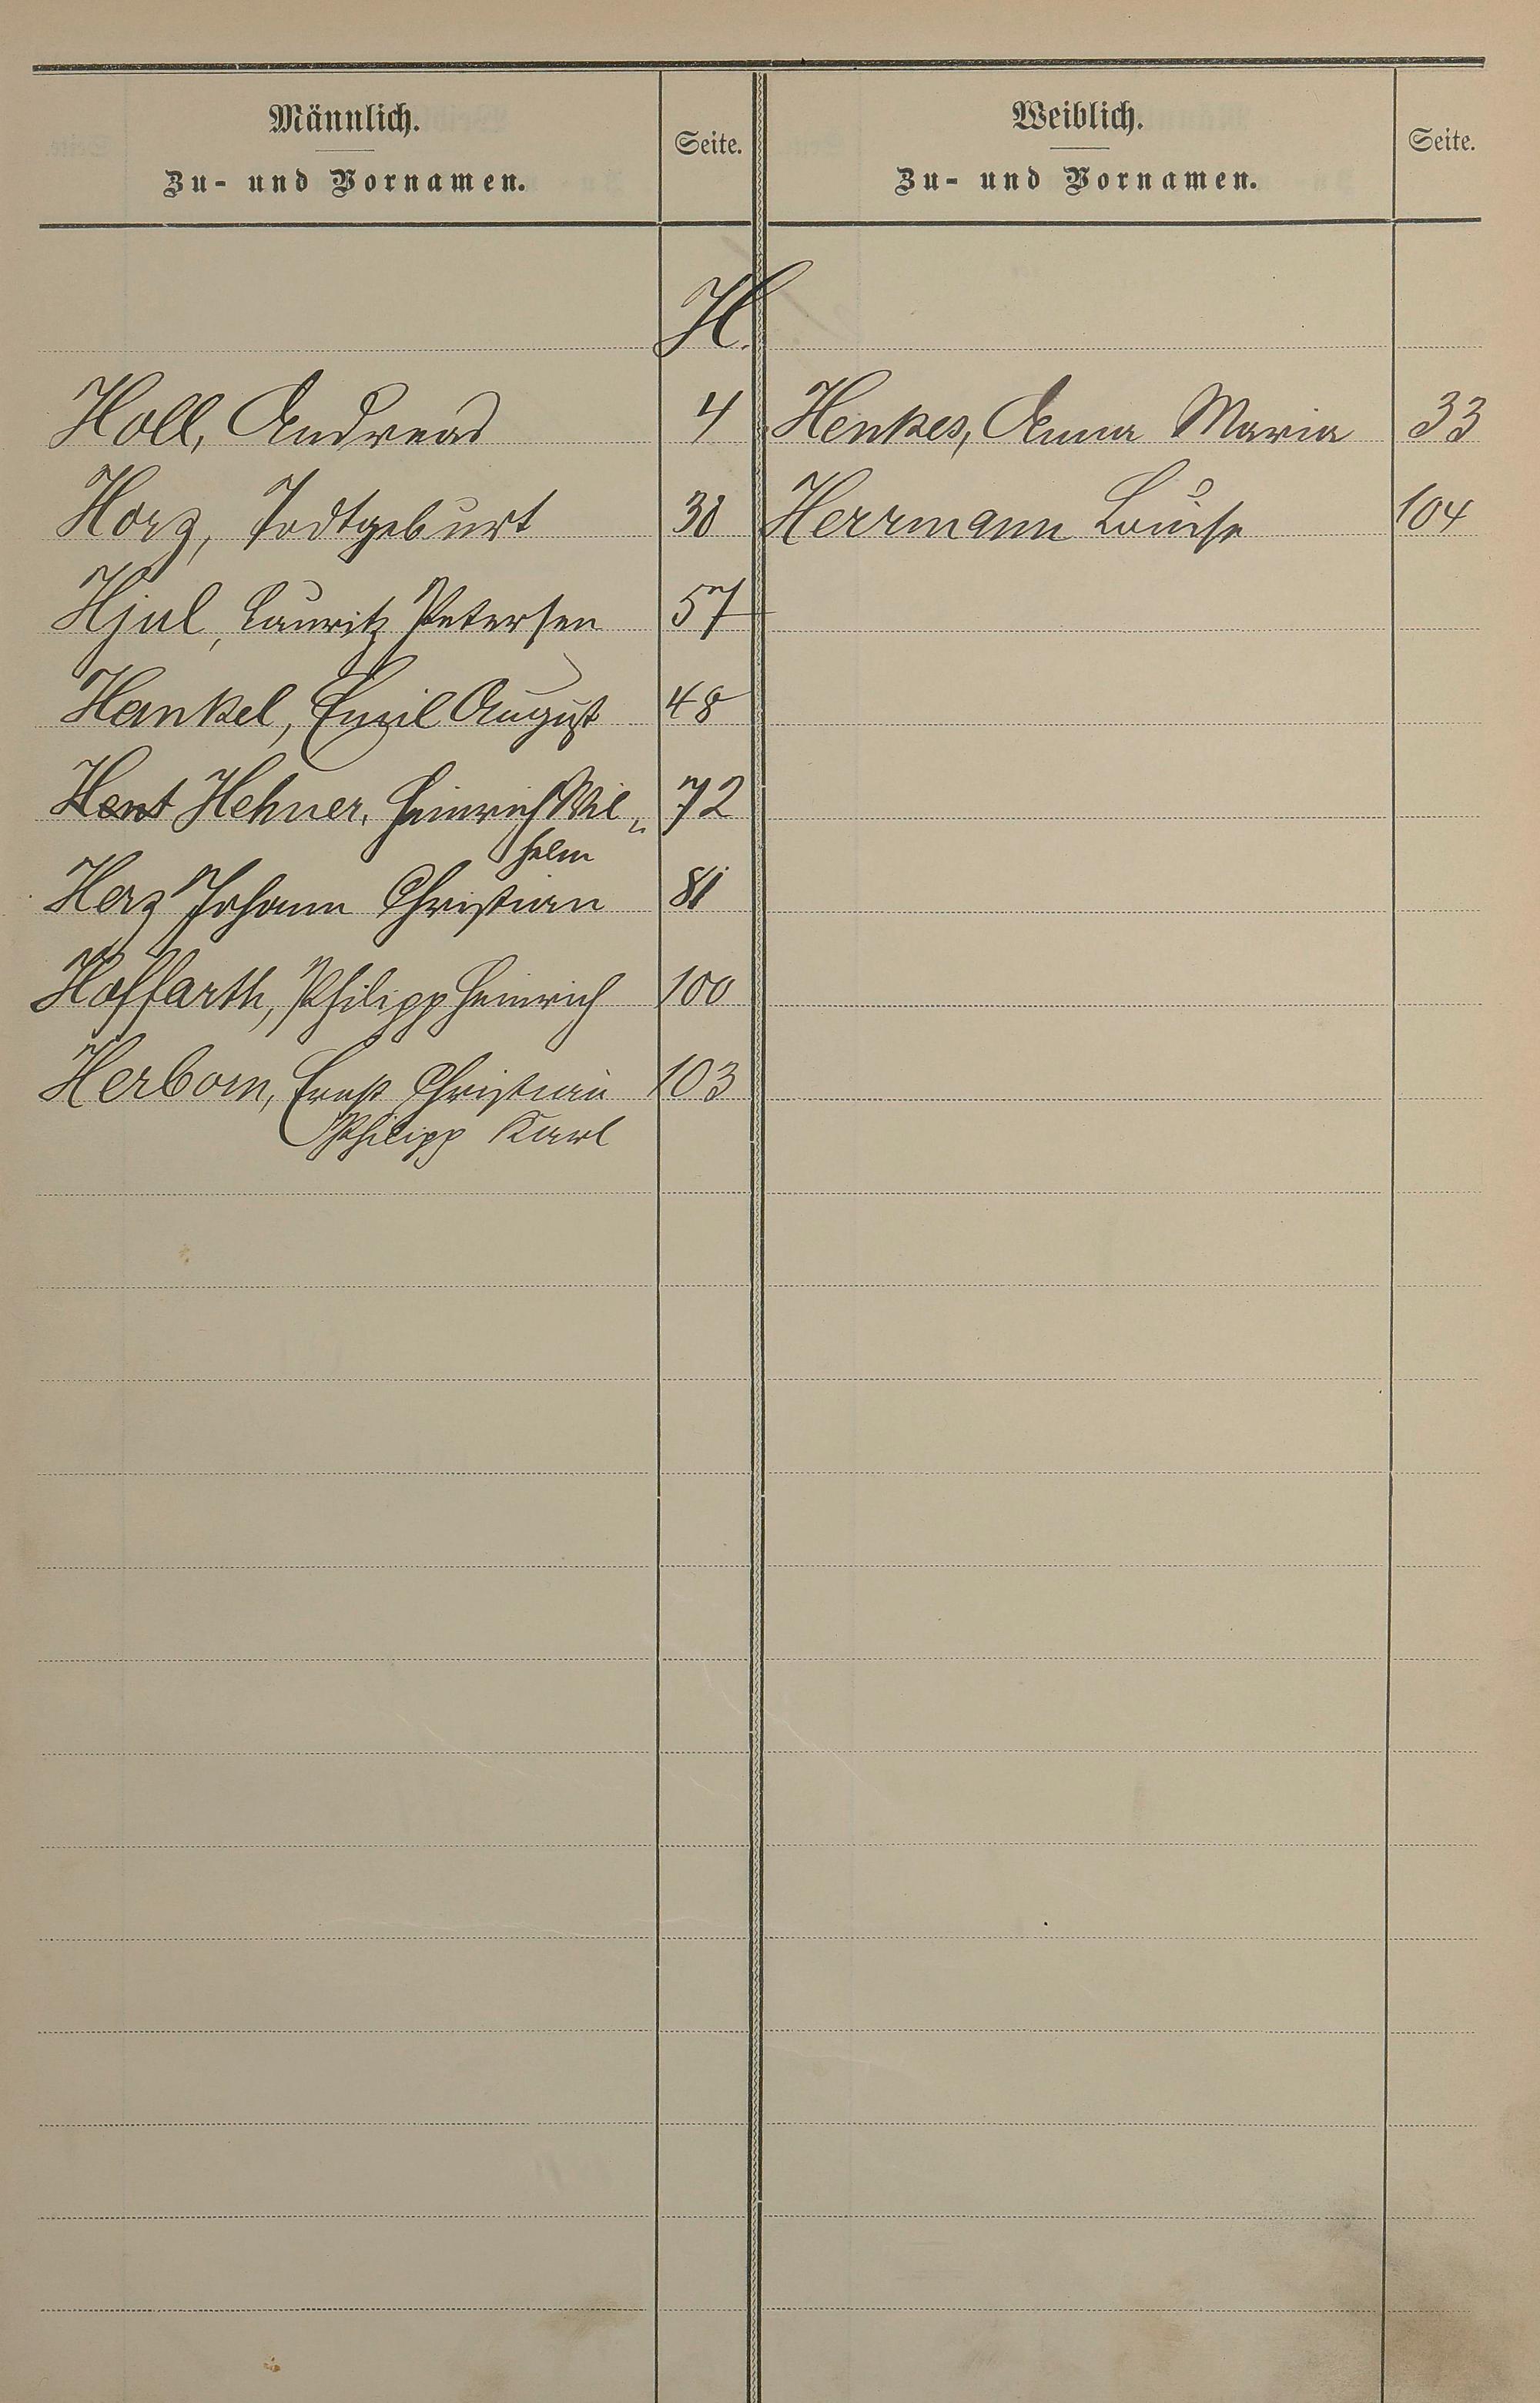 Männlich.
Zu- und Vornamen.
Seite.
Weiblich.
Zu- und Vornamen.
Seite.
H.
Holl, Andreas 4 Henkes, Anna Maria 33
Horz, Todtgeburt 30 Herrmann Louise 104
Hjul, Lauritz Petersen 57
Hankel, Emil August 48
Hent Hehner, Heinrich Wil„ 72
helm
Herz Johann Christian 81
Hoffarth, Philipp Heinrich 100
Herborn, Ernst Christian 103
Philipp Karl